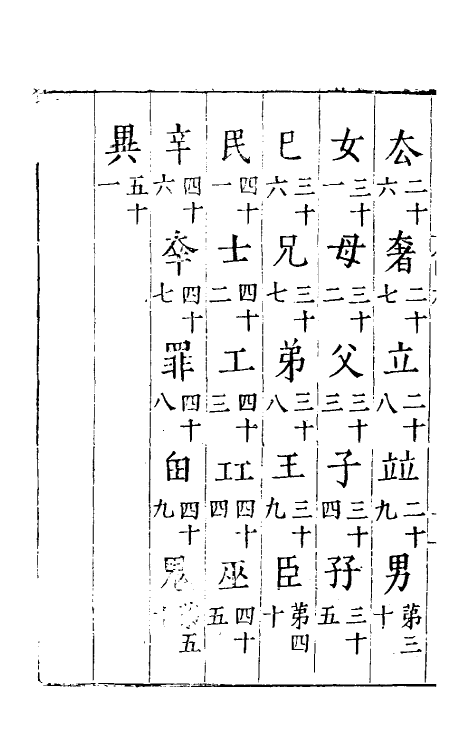 厺二十六奢二十七立二十八竝二十九男第三十
女三十一母三十二父三十三子三十四孖三十五
巳三十六兄三十七弟三十八王三十九臣第四十
民四十一士四十二工四十三㠭四十四巫四十五
辛四十六㚔四十七罪四十八甶四十九鬼第五十
異五十一